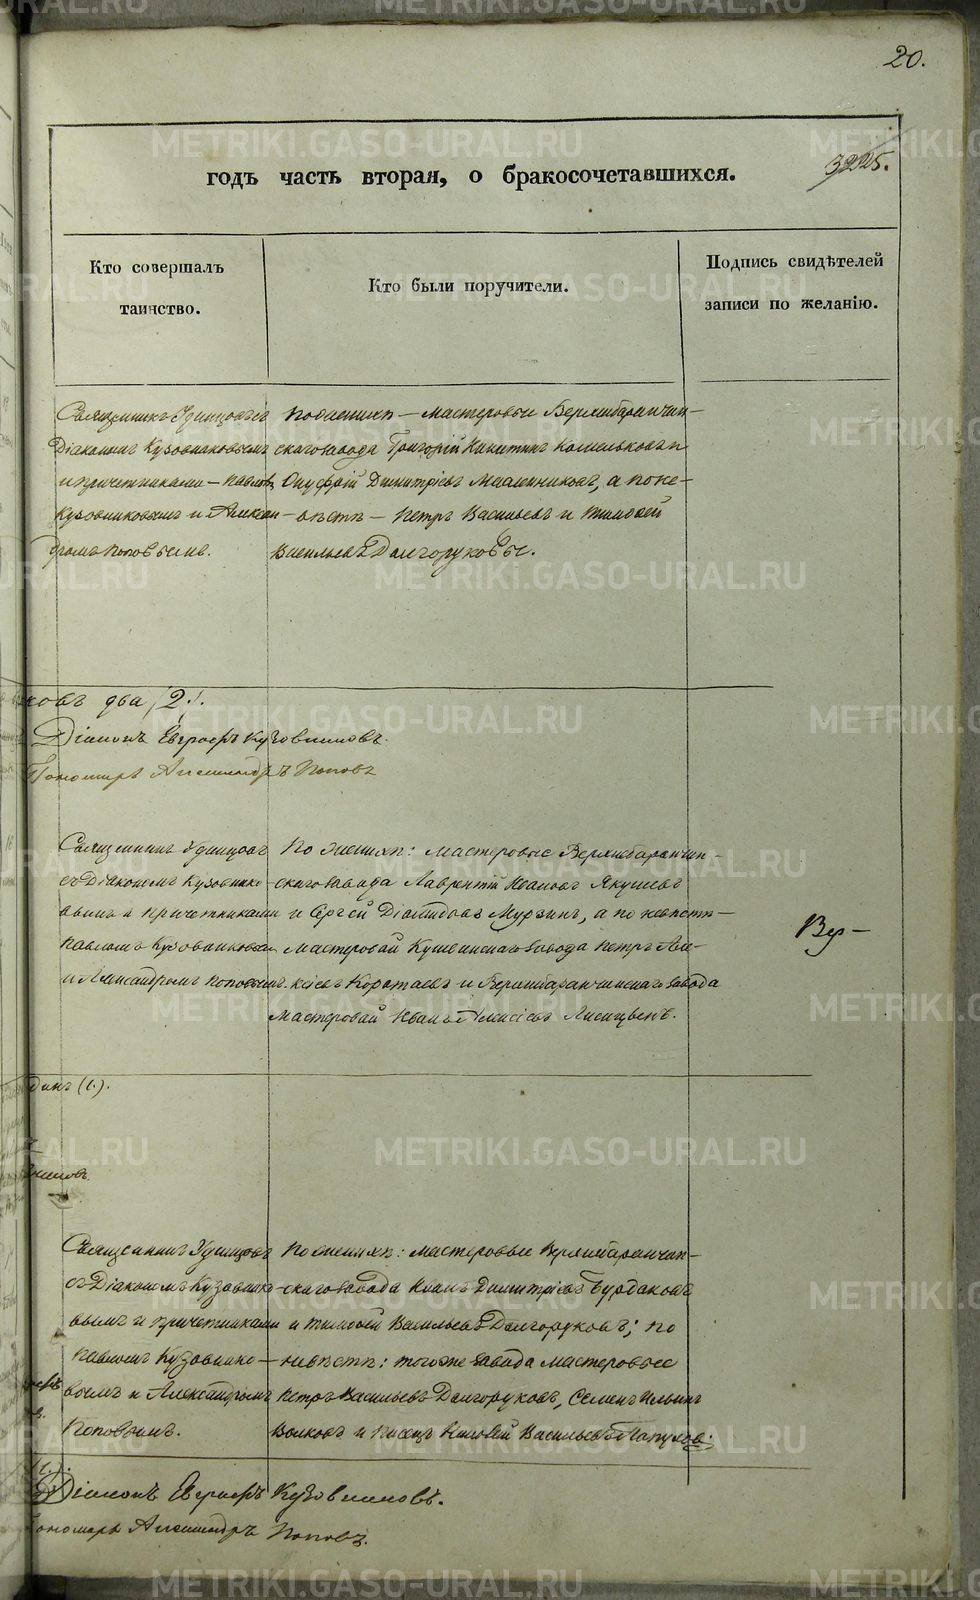 20.
годъ часть вторая, о бракосочетавшихся.
Кто совершалъ
таинство.
Кто были поручители.
Подпись свидѣтелей
записи по желанію.
Священникъ Удинцовъ съ
Діакономъ Кузовниковымъ
и причетниками — Павлом
Кузовниковымъ и Алексан-
дромъ Поповымъ.
По женихѣ — мастеровые Верхнебаранчин-
скаго завода Григорій Никитинъ и
Онуфрій Димитріевъ Мысленниковъ, а по не-
вѣстѣ — Петръ Васильевъ и Тимофей
Васильевъ Долгоруковы.
ковъ два (2).
Діаконъ Евграфъ Кузовниковъ.
Пономарь Александръ Поповъ
Священникъ Удинцовъ
съ Діакономъ Кузовнико-
вымъ и причетниками
Павломъ Кузовниковым
и Александромъ Поповымъ.
По женихѣ: мастеровые Верхнебаранчин-
скаго завода Лаврентій Ивановъ Якушевъ
и Сергѣй Діомидовъ Мурзинъ, а по невѣстѣ —
мастеровой Кушвинскаго завода Петръ Але-
ксѣевъ Коротаевъ и Верхнебаранчинскаго завода
мастеровой Иванъ Алексѣевъ
Вер-
динъ (1).
Священникъ Удинцовъ
съ Діакономъ Кузовнико-
вымъ и причетниками
Павломъ Кузовнико-
вымъ и Александромъ
Поповымъ.
По женихѣ: мастеровые Верхнебаранчин-
скаго завода Иванъ Димитріевъ Бурдаковъ
и Тимофей Васильевъ Долгоруковъ; по
невѣстѣ: того же завода мастеровые
Петръ Васильевъ Долгоруковъ, Семенъ Ильинъ
Волковъ и Писецъ Васильевъ
Діаконъ Евграфъ Кузовниковъ.
Пономарь Александръ Поповъ.
METRIKI.GASO-URAL.RU